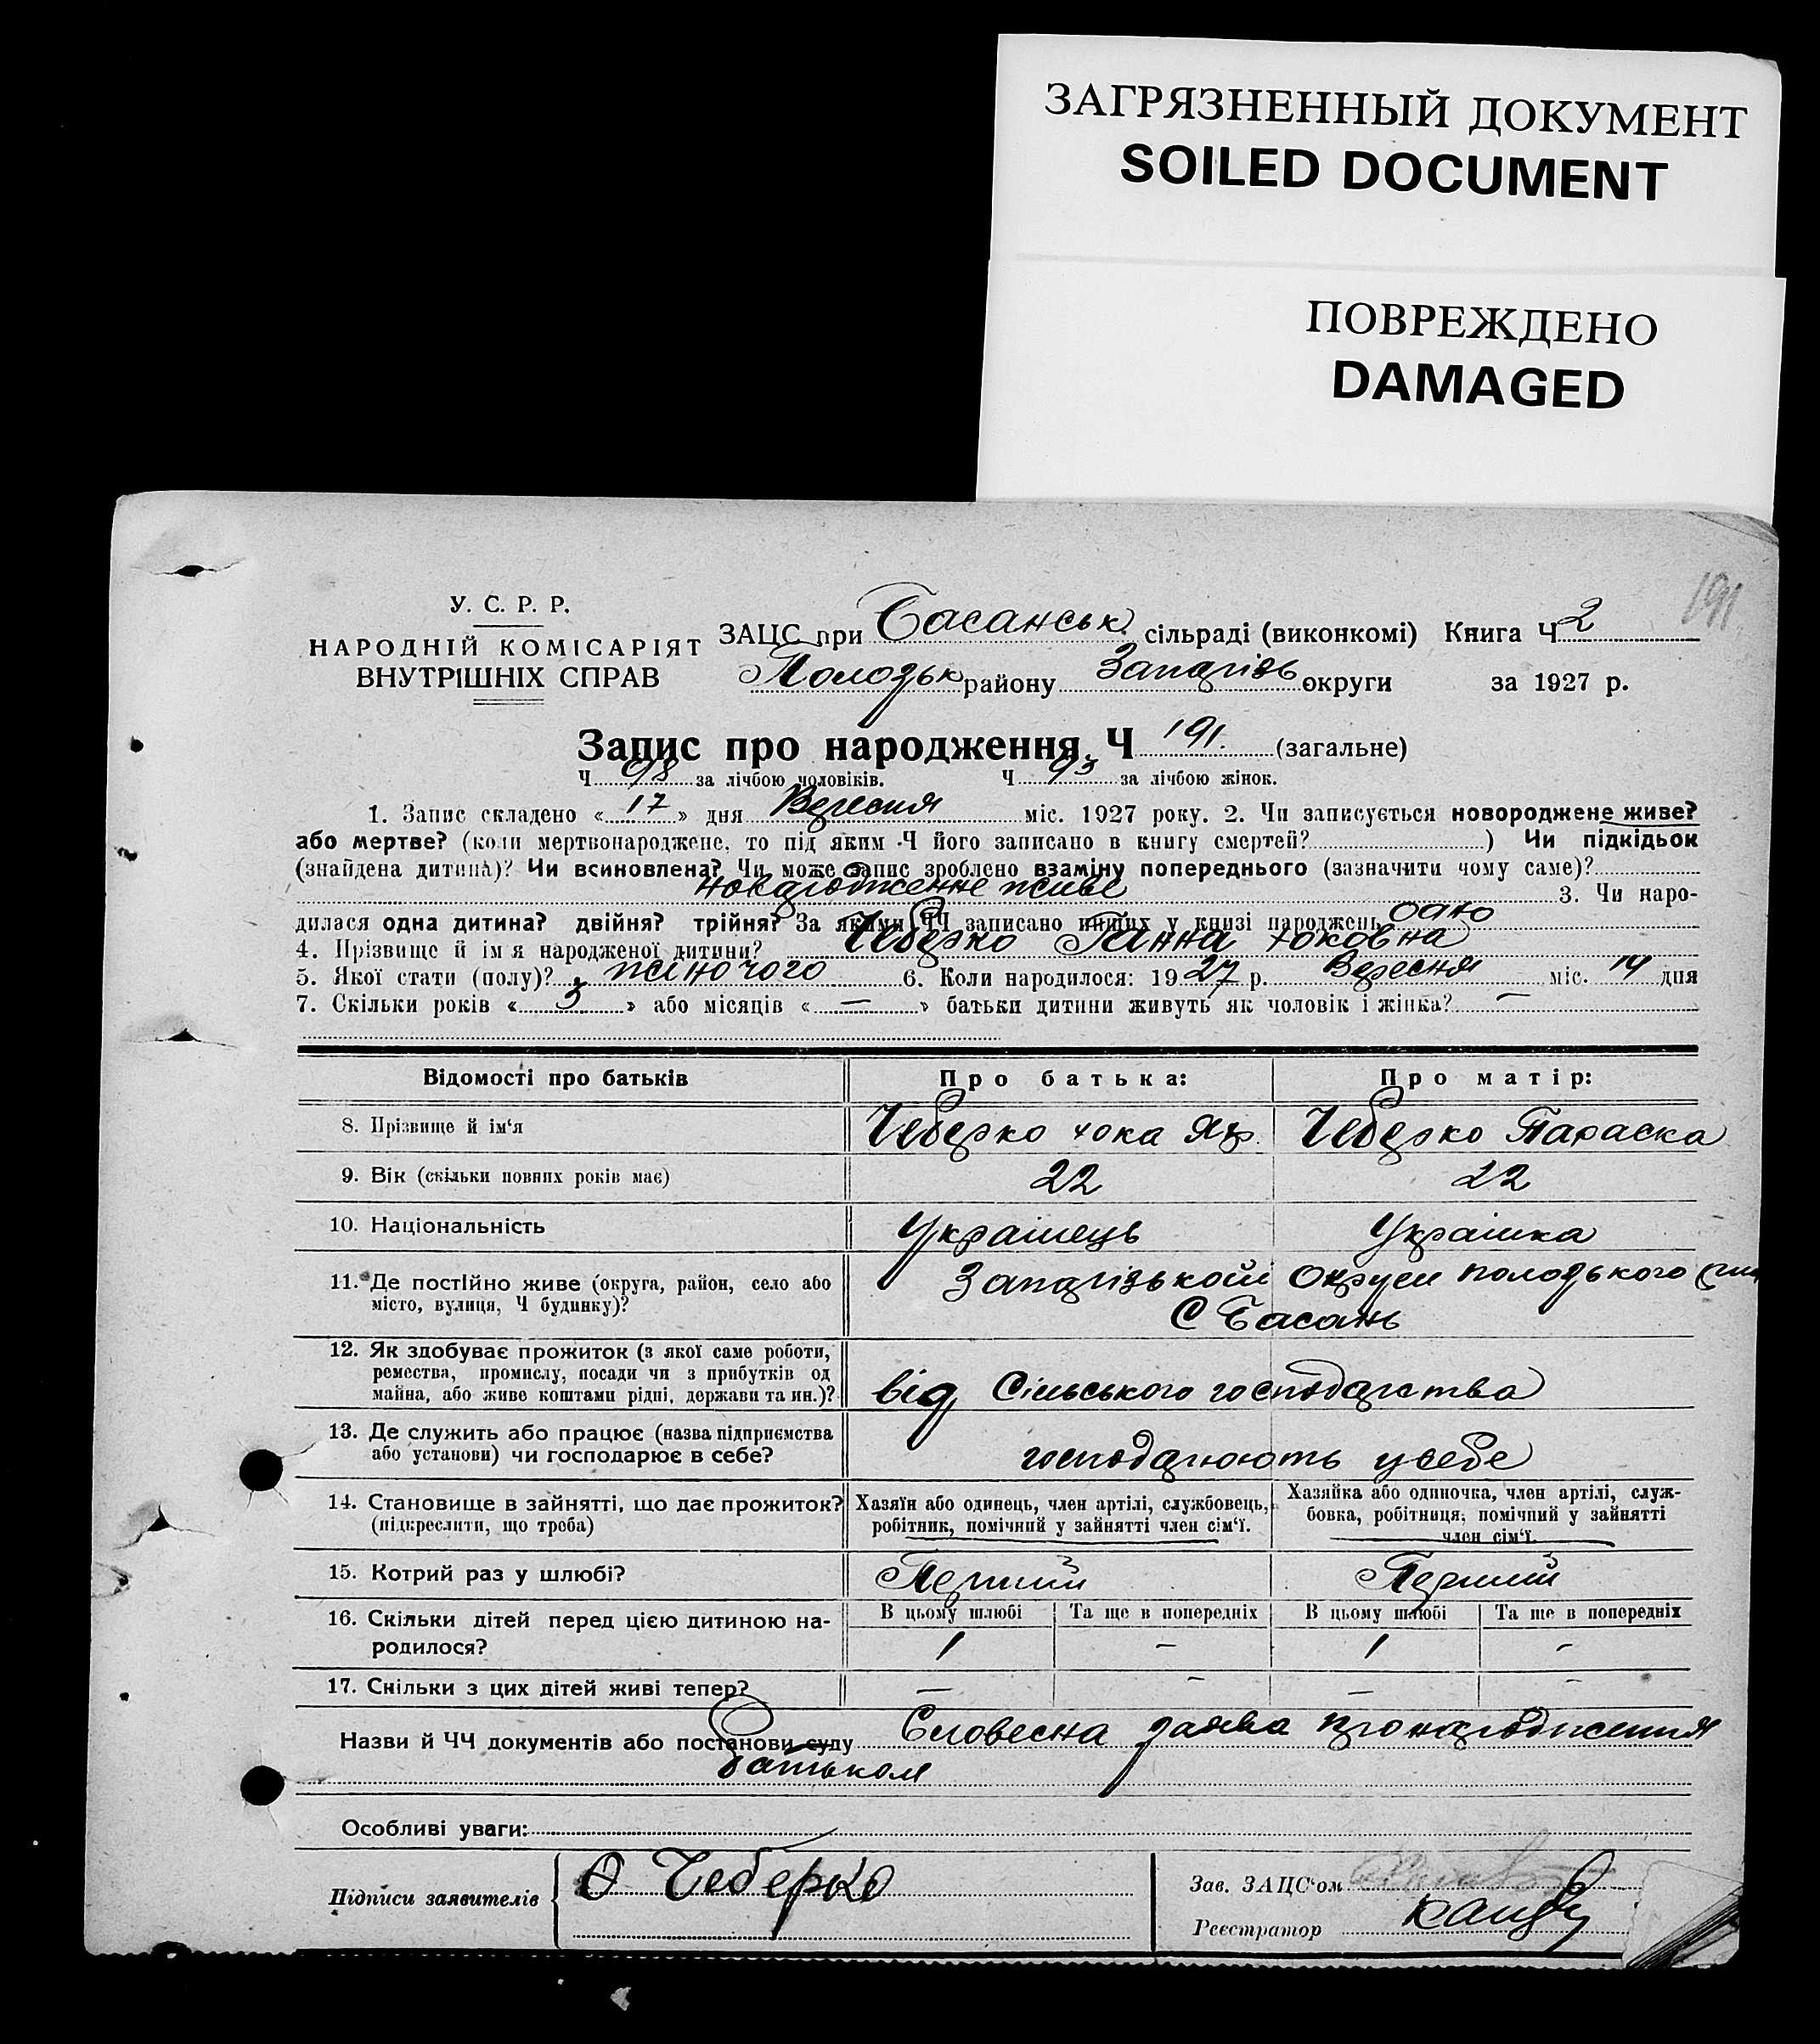 ЗАГРЯЗНЕННЫЙ ДОКУМЕНТ
SOILED DOCUMENT
ПОВРЕЖДЕНО
DAMAGED
191
У. С. Р. Р.
НАРОДНІЙ КОМІСАРІЯТ
ВНУТРІШНІХ СПРАВ
ЗАЦС при Басанськ. сільраді (виконкомі) Книга Ч 2
Полозьк району Запорізь округи за 1927 р.
Запис про народження Ч 191. (загальне)
Ч 98 за лічбою чоловіків. Ч 93 за лічбою жінок.
1. Запис складено «17» дня Вересня міс. 1927 року. 2. Чи записується новороджене живе?
або мертве? (коли мертвонароджене, то під яким Ч його записано в книгу смертей? ) Чи підкідьок
(знайдена дитина)? Чи всиновлена? Чи може запис зроблено взаміну попереднього (зазначити чому саме)?
новародженне живе 3. Чи наро-
дилася одна дитина? двійня? трійня? За якими ЧЧ записано инших у книзі народжень одно
4. Прізвище й ім я народженої дитини? Чеберко Ганна
5. Якої стати (полу)? жіночого 6. Коли народилося: 1927 р. Вересня міс. 14 дня
7. Скільки років «3» або місяців «—» батьки дитини живуть як чоловік і жінка? —
Відомості про батьків Про батька: Про матір:
8. Прізвище й ім‘я Чеберко Чеберко Параска
9. Вік (скільки повних років має) 22 22
10. Національність Українець Українка
11. Де постійно живе (округа, район, село або
місто, вулиця, Ч будинку)?
Запорізької Округи Полозького
С Басань
12. Як здобуває прожиток (з якої саме роботи,
ремества, промислу, посади чи з прибутків од
майна, або живе коштами рідні, держави та ин.)?
від Сільського господарства
13. Де служить або працює (назва підприємства
або установи) чи господарює в себе?
господарюють у себе
14. Становище в зайнятті, що дає прожиток?
(підкреслити, що треба)
Хазяїн або одинець, член артілі, службовець,
робітник, помічний у зайнятті член сім‘ї.
Хазяйка або одиночка, член артілі, служ-
бовка, робітниця, помічний у зайнятті
член сім‘ї.
15. Котрий раз у шлюбі? Перший Перший
16. Скільки дітей перед цією дитиною на-
родилося?
В цьому шлюбі Та ще в попередніх В цьому шлюбі Та ще в попередніх
1 — 1 —
17. Скільки з цих дітей живі тепер? — — — —
Назви й ЧЧ документів або постанови суду Словесна заява про народження
батьком
Особливі уваги:
Підписи заявителів Чеберко
Зав. ЗАЦС‘ом
Реєстратор